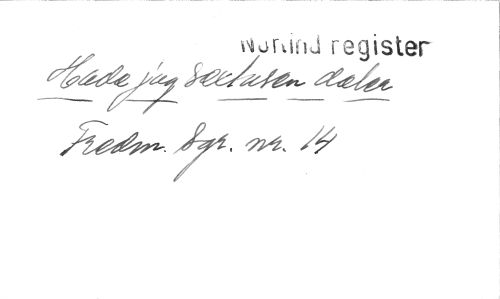 Norlind register
Hade jag sextusen daler
Fredm. Sgr. nr. 14